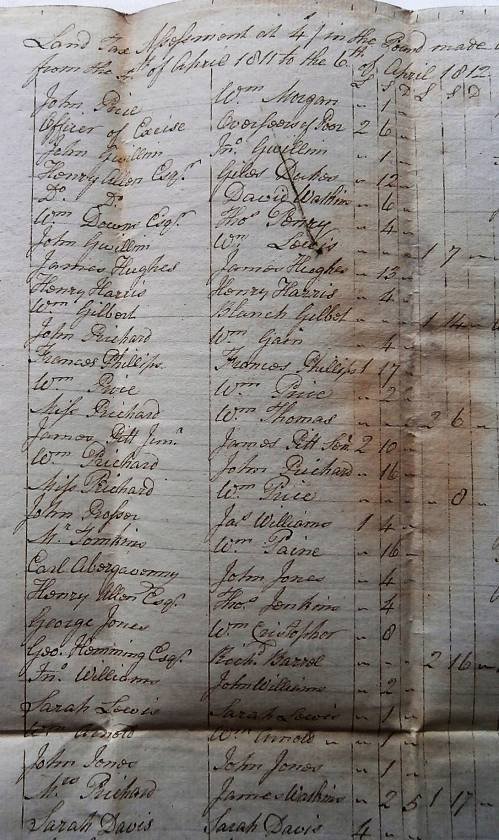 Land Tax Assessment at 4s/ in the Pound made
from the 5th of April 1811 to the 6th of April 1812
L S D L S D
John Price Wm Morgan - 1 -
Officer of Excise Overseers of Poor 2 6 -
John Gwillim Jno Gwillim - 1 -
Henry Allen Esqr Giles - 12 -
Do Do David Watkin - 6 -
Wm Downs Esqr Thos Penry - 4 -
John Gwillim Wm Lewis - - - 1 7 -
James Hughes James Hughes - 13 -
Henry Harris Henry Harris - 4 -
Wm Gilbert Blanch Gilbet - - - 1 14 -
John Prichard Wm Gain - 4 -
Frances Phillips Frances Phillips 1 17 -
Wm Price Wm Price - 2 -
Miss Prichard Wm Thomas - - - 2 6 -
James Pitt Junr James Pitt Senr 2 10 -
Wm Prichard John Prichard - 16 -
Miss Prichard Wm Price - - - - 8 -
John Prosser Jas Williams 1 4 -
Mr Tomkins Wm Paine - 16 -
Earl Abergavenny John Jones - 4 -
Henry Allen Esqr Thos Jenkins - 4
George Jones Wm Cristopher - 8
Geo. Hemming Esqr Richd Barrel - - - 2 16 -
Jno Williams John Williams - 2 -
Sarah Lewis Sarah Lewis - 1 -
Wm Arnold Wm Arnold - 1 -
John Jones John Jones - 1 -
Mrs Prichard James Watkins - 2 5 1 17 -
Sarah Davis Sarah Davis 4 - -